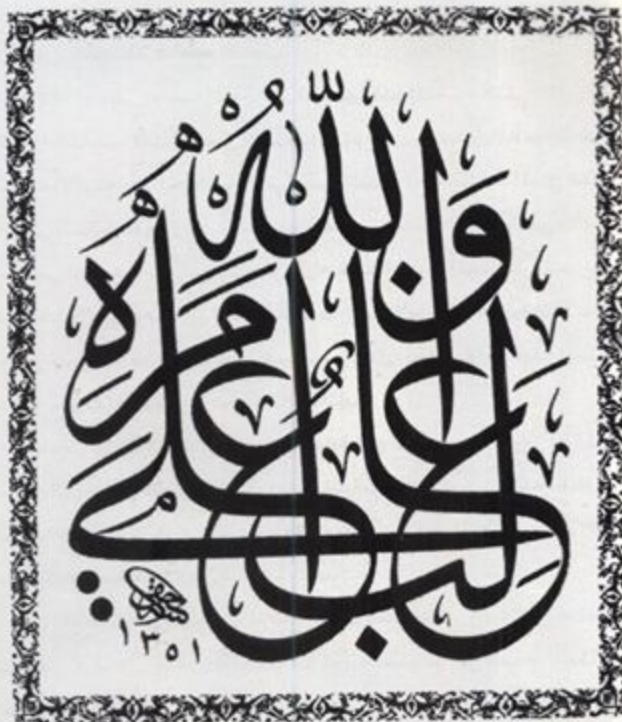 والله غالب على امره
١٣٥١